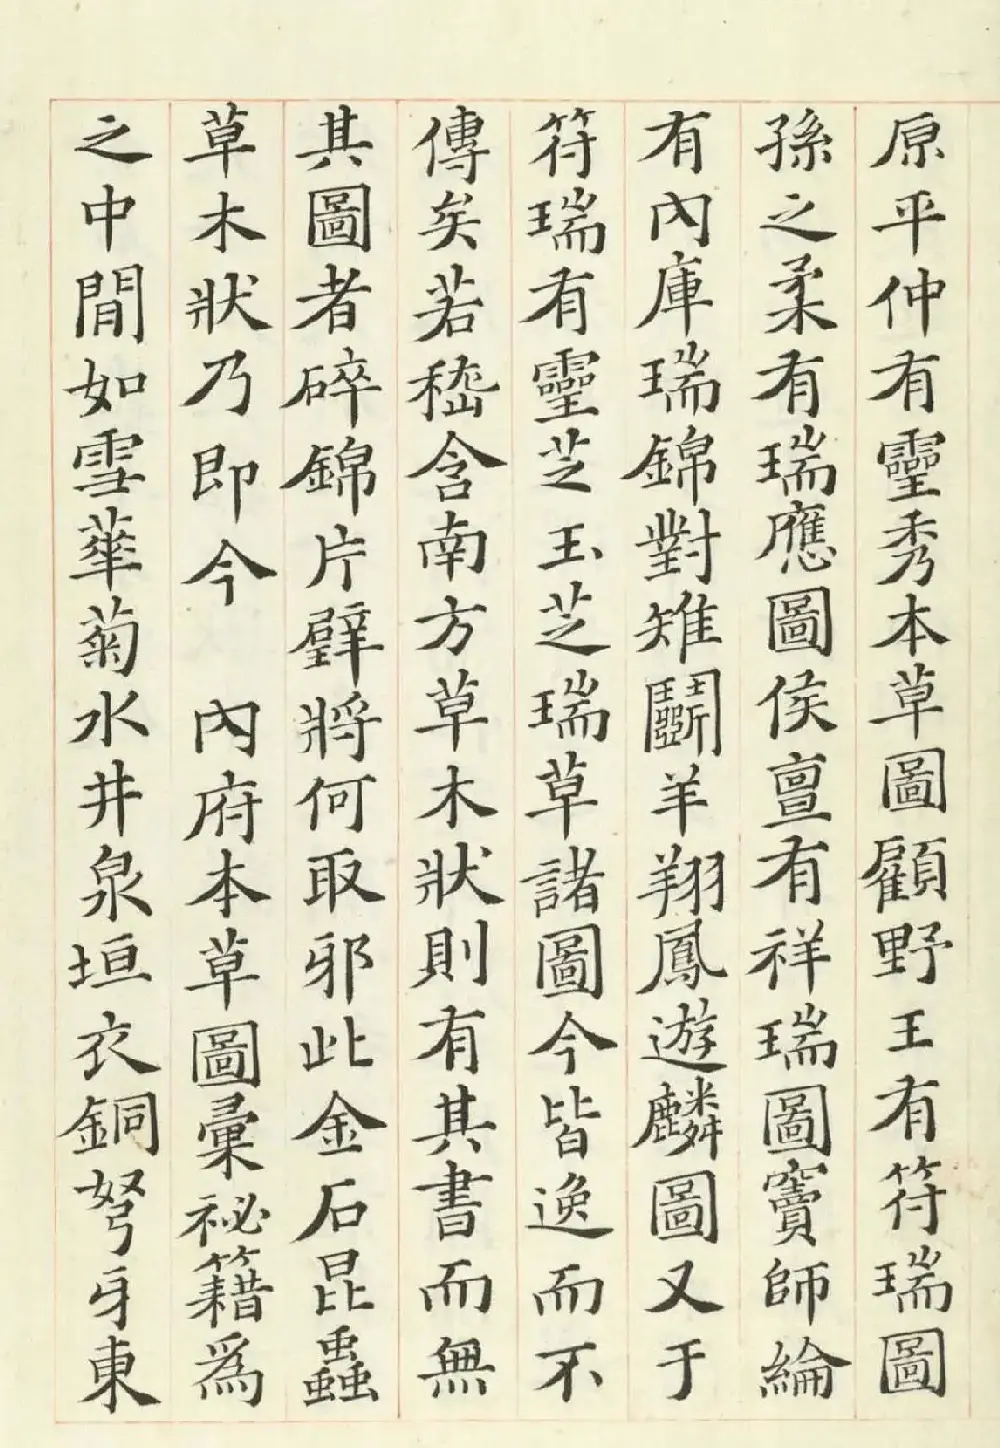 原平仲有靈秀本草圖顧野王有符瑞圖
孫之柔有瑞應圖侯亶有祥瑞圖竇師綸
有內庫瑞錦對雉鬭羊翔鳳遊麟圖又于
符瑞有靈芝玉芝瑞草諸圖今皆逸而不
傳矣若嵇含南方草木狀則有其書而無
其圖者碎錦片璧將何取邪此金石昆蟲
草木狀乃即今 內府本草圖彙祕籍為
之中閒如雪華菊水井泉垣衣銅弩牙東